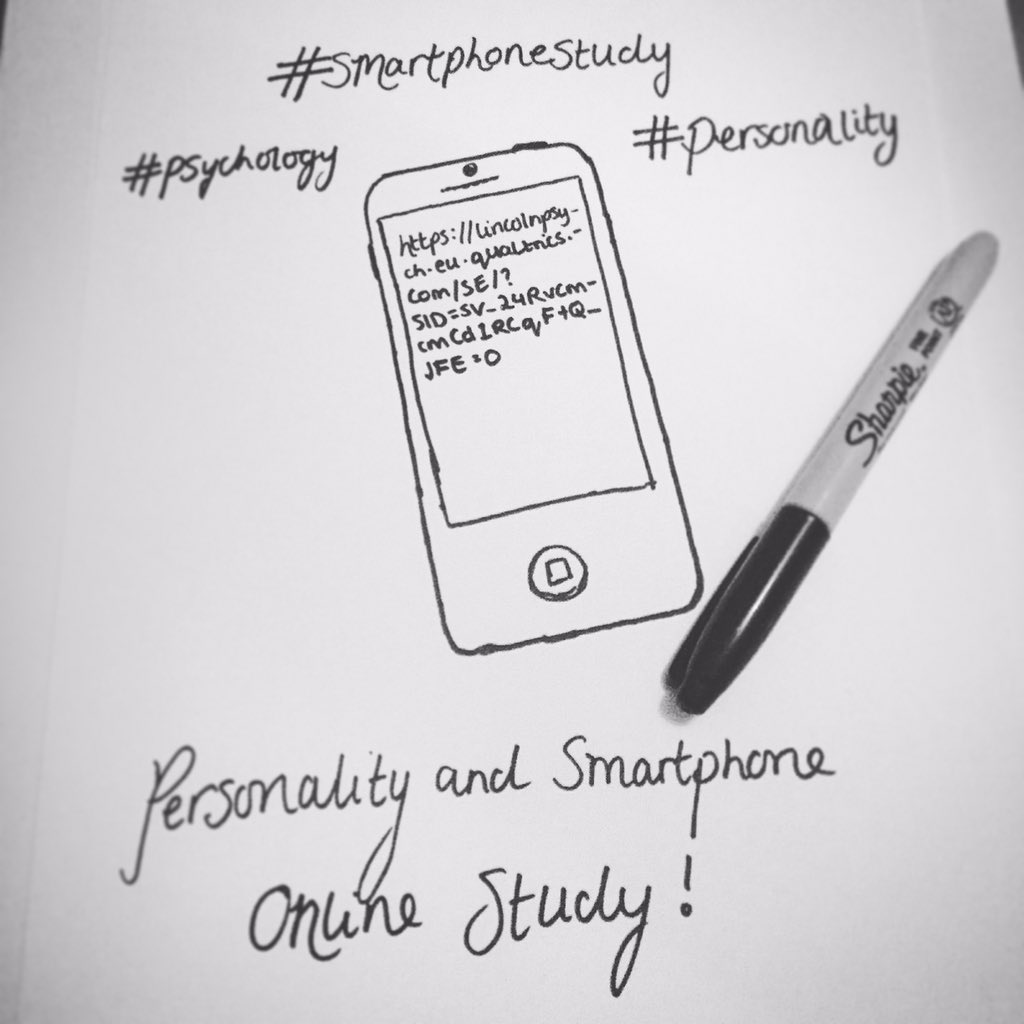 #smartphonestudy
#psychology
#personality
https://lincolnpsy-
ch.eu.qualtrics.-
com/SE/?
SID=SV_24Rvcm-
cmCd1RCqFtQ_
JFE=0
Sharpie.
FINE
POINT
Personality and Smartphone
Online Study!